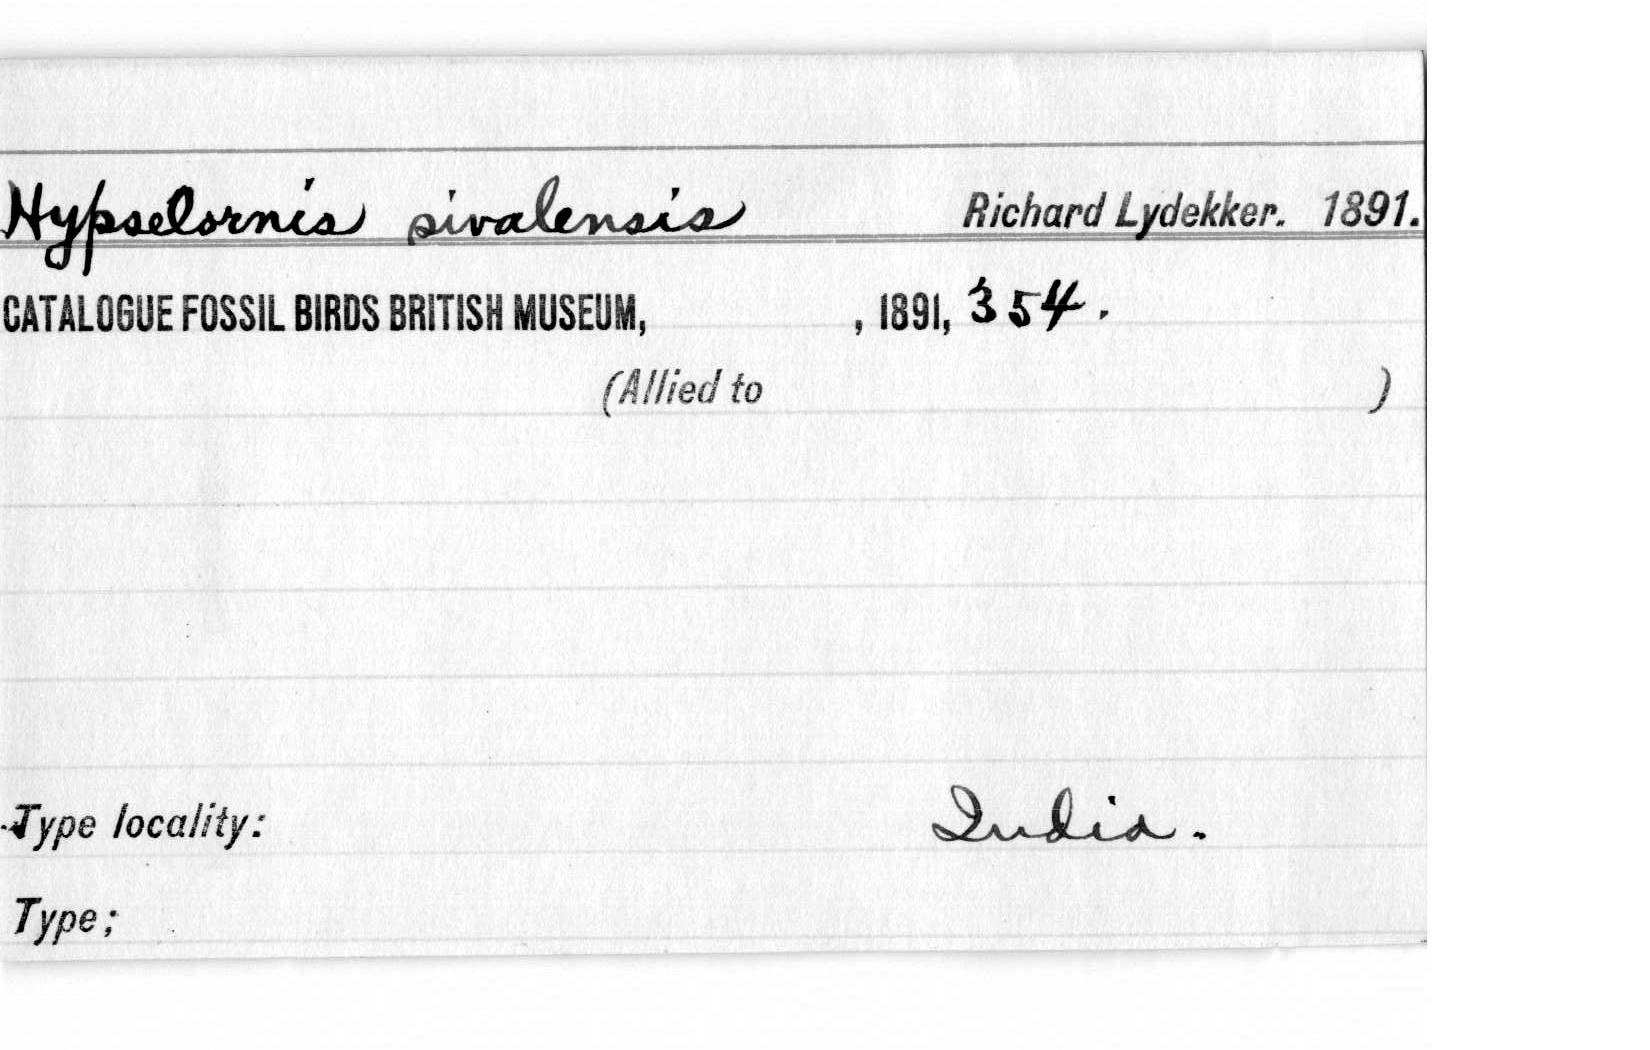 Hypselornis sivalensis Richard Lydekker. 1891.
CATALOGUE FOSSIL BIRDS BRITISH MUSEUM, , 1891, 354.
(Allied to )
Type locality: India.
Type;